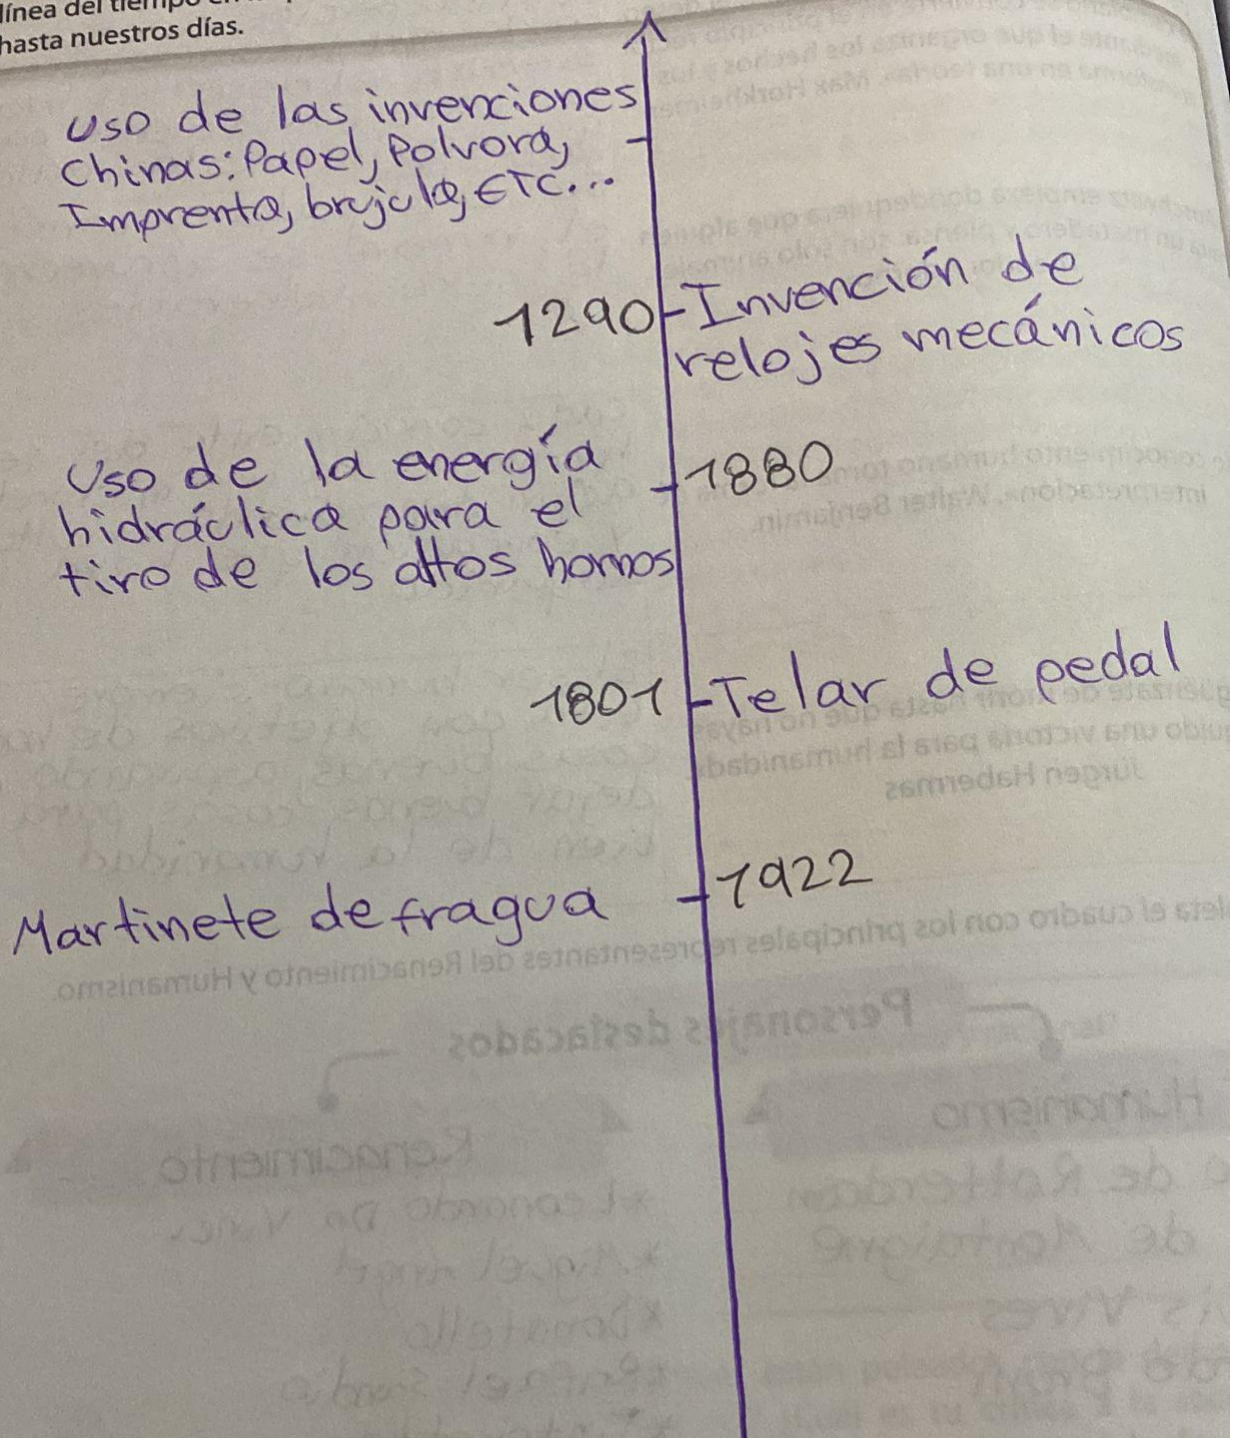 hasta nuestros días.
Uso de las invenciones
Chinas: Papel, Polvora,
Imprenta, brujula, ETC...
1290 Invención de
relojes mecánicos
Uso de la energía 1880
hidráulica para el
tiro de los altos hornos
1801 Telar de pedal
Martinete de fragua 1922